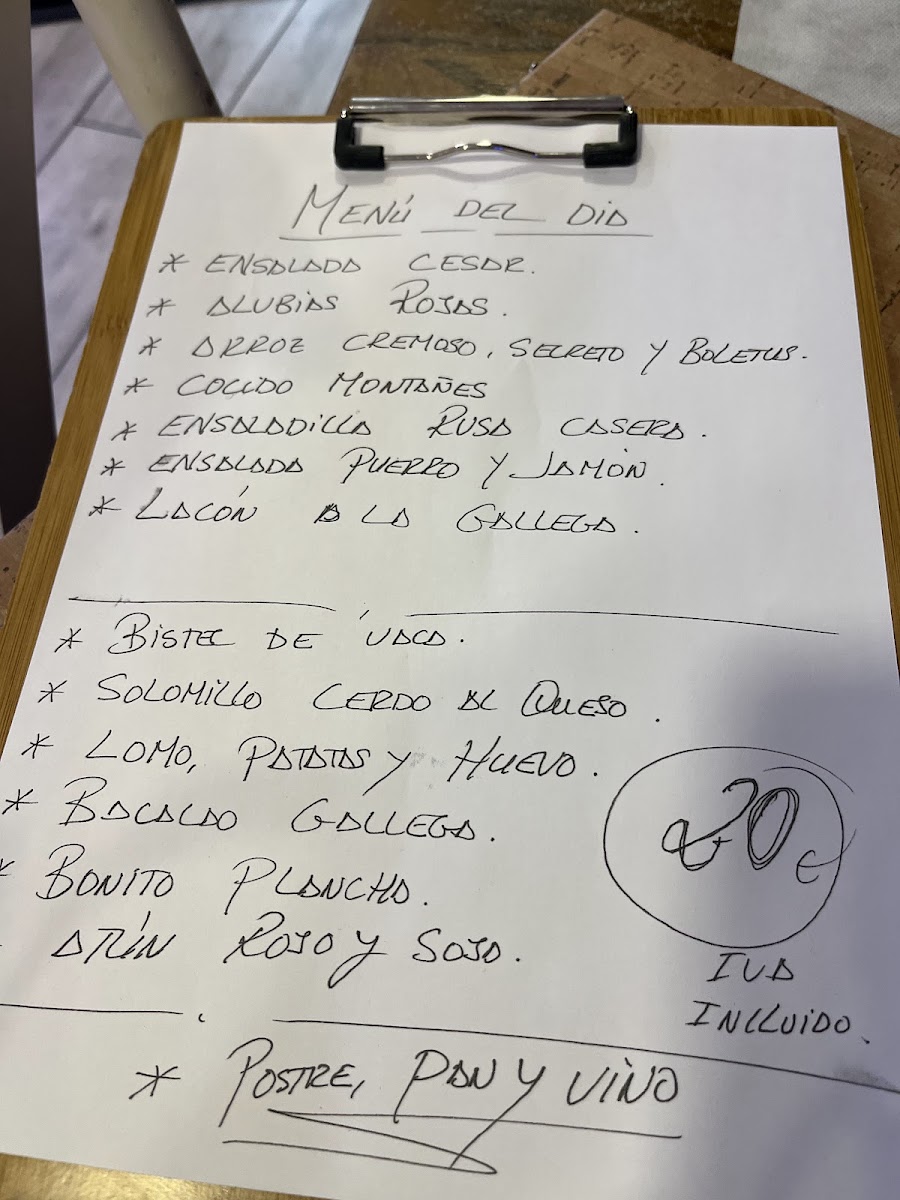 MENÚ DEL DIA
* ENSALADA CESAR.
* ALUBIAS ROJAS.
* ARROZ CREMOSO, SECRETO Y BOLETUS.
* COCIDO MONTAÑES
* ENSALADILLA RUSA CASERA.
* ENSALADA PUERRO Y JAMÓN.
* LACÓN A LA GALLEGA.
* BISTEC DE VACA.
* SOLOMILLO CERDO AL QUESO.
* LOMO, PATATAS Y HUEVO.
* BACALAO GALLEGA.
* BONITO PLANCHA.
ATÚN ROJO Y SOJA.
20 €
IVA
INCLUIDO.
* POSTRE, PAN Y VINO